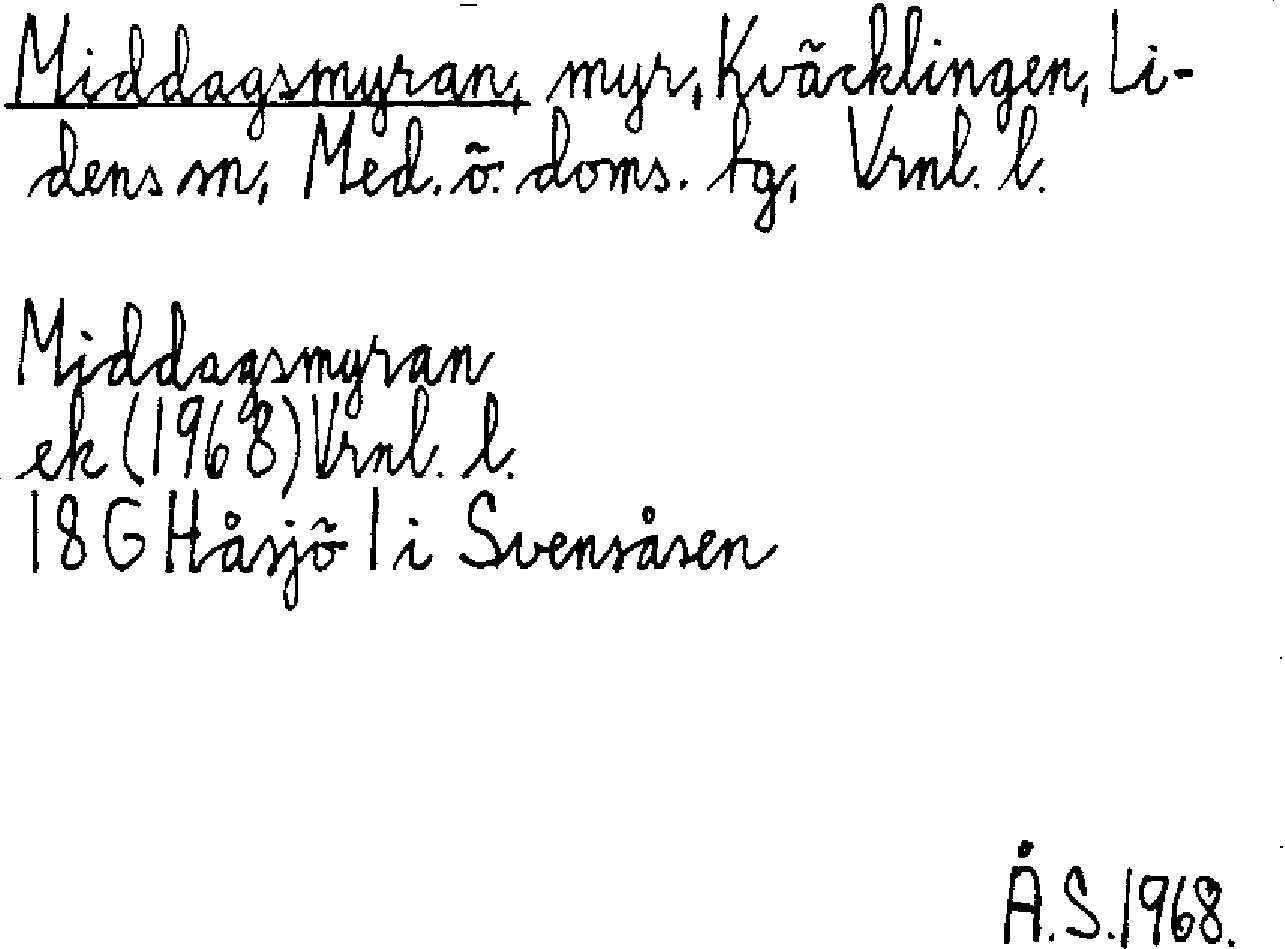 Middagsmyran, myr, Kväcklingen, Li-
dens sn, Med. ö. doms. tg, Vrnl. l.
Middagsmyran
ek (1968) Vrnl. l.
18 G Håsjö 1 i Svensåsen
Å.S. 1968.